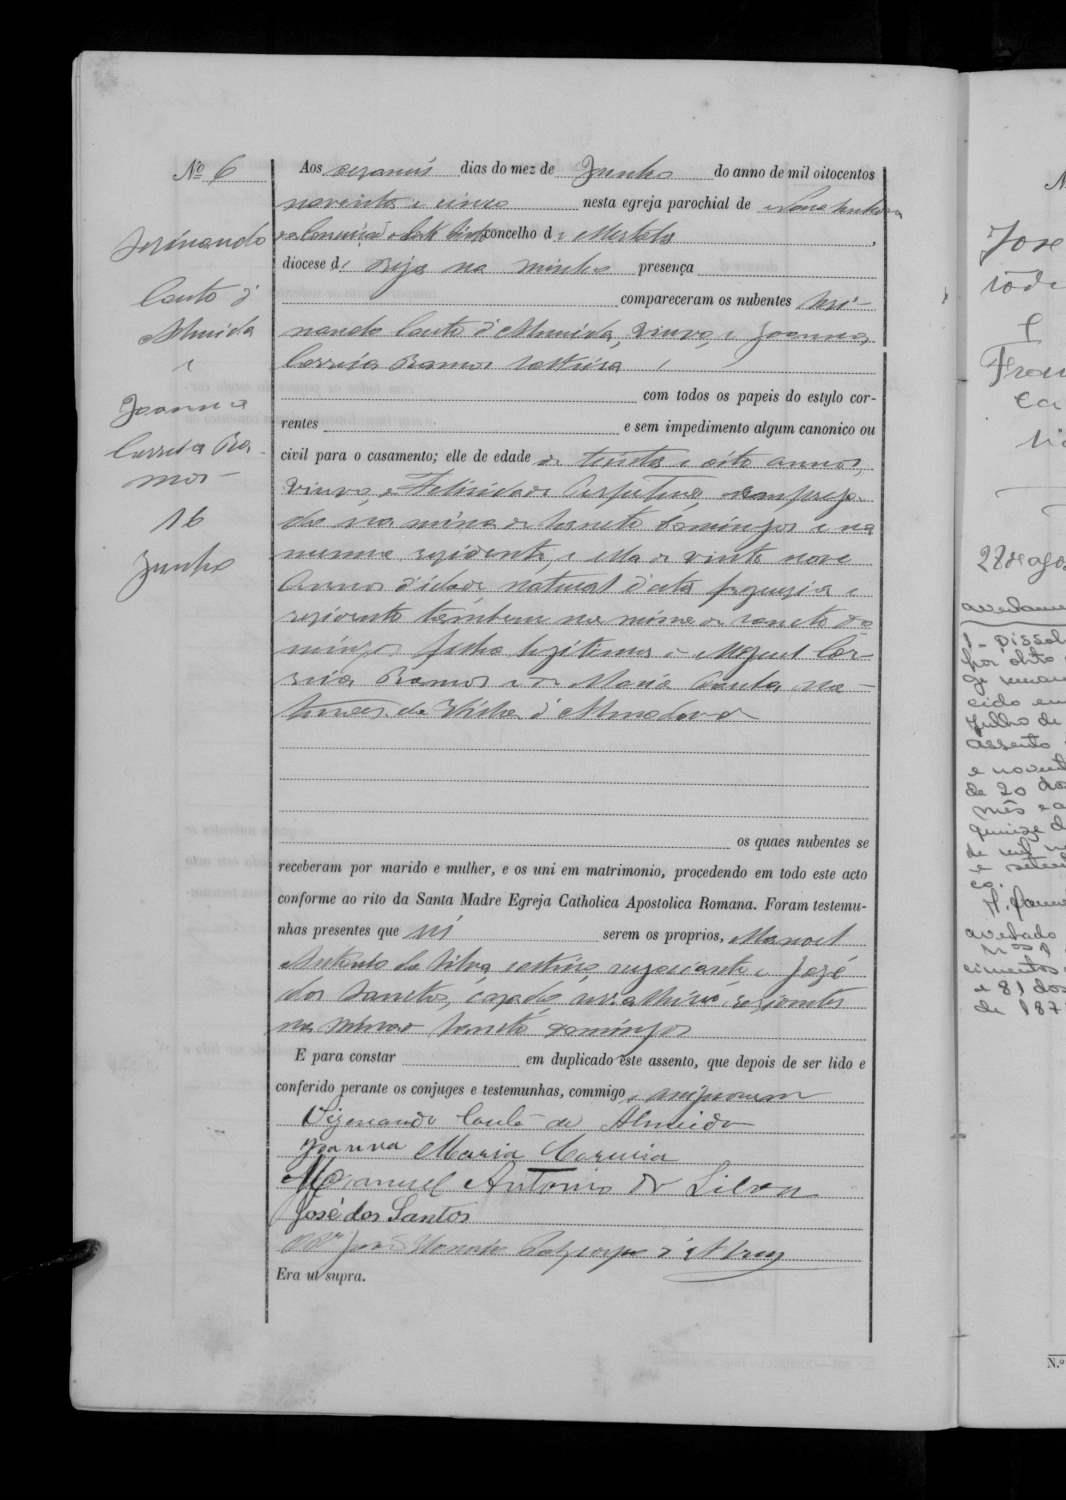 Nº 6
Couto d'
Almeida
e
Joanna
Correia Ra-
mos
16
Junho
Aos dias do mez de Junho do anno de mil oitocentos
noventa e cinco nesta egreja parochial de Nossa Senhora
da Conceição concelho de Mertola,
diocese de Beja na minha presença
compareceram os nubentes
nando Couto d'Almeida, viuvo, e Joanna
Correia Ramos solteira
com todos os papeis do estylo cor-
rentes e sem impedimento algum canonico ou
civil para o casamento; elle de edade de trinta e oito annos,
viuvo de Felicidade Perpetua, emprega-
do na mina de Sancto Domingos e na
mesma rezidente, e ella de vinte nove
annos d'idade natural d'esta freguezia e
rezidente tambem na mina de Sancto Do-
mingos filha legitima de Miguel Cor-
reia Ramos e de Maria Paula na-
turaes da Villa d'Almodovar
os quaes nubentes se
receberam por marido e mulher, e os uni em matrimonio, procedendo em todo este acto
conforme ao rito da Santa Madre Egreja Catholica Apostolica Romana. Foram testemu-
nhas presentes que sei serem os proprios, Manoel
Antonio da Silva, solteiro, negociante e José
dos Sanctos, cazado, rezidentes
na mina de Sancto Domingos
E para constar em duplicado este assento, que depois de ser lido e
conferido perante os conjuges e testemunhas, commigo assignaram
Couto de Almeida
Joanna Maria Correia
Manuel Antonio da Silva
José dos Santos
Era ut supra.
José
Fran
28 de ago
1 - Dissol
por obito
cido em
Julho de
assento
e novent
de 20 do
mês e a
quinze d
de mil n
e seten
co.
averbado
Nºs 1
e 81 dos
de 187
N.º